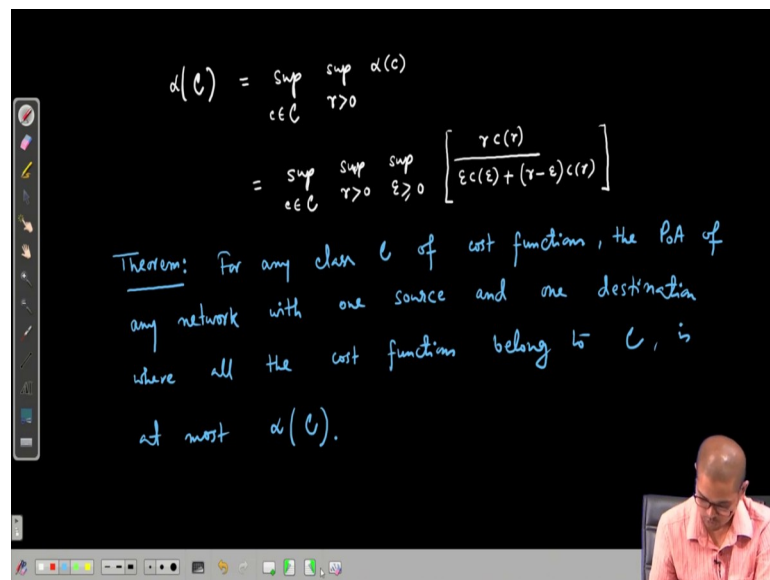 α(C) = sup sup α(c)
c∈C r>0
= sup sup sup [ r c(r) / (ε c(ε) + (r-ε) c(r)) ]
c∈C r>0 ε≥0
Theorem: For any class C of cost functions, the PoA of
any network with one source and one destination
where all the cost functions belong to C, is
at most α(C).